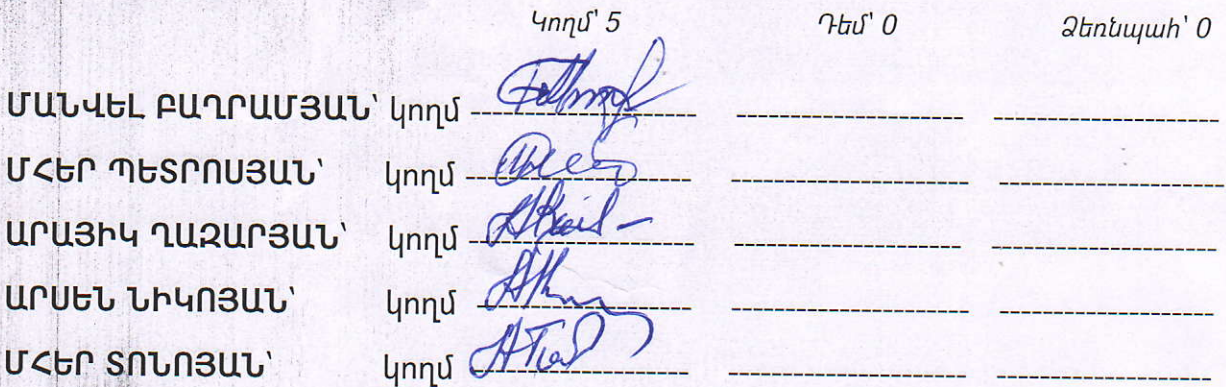 Կողմ՝ 5 Դեմ՝ 0 Ձեռնպահ՝ 0
ՄԱՆՎԵԼ ԲԱՂՐԱՄՅԱՆ՝ կողմ
ՄՀԵՐ ՊԵՏՐՈՍՅԱՆ՝ կողմ
ԱՐԱՅԻԿ ՂԱԶԱՐՅԱՆ՝ կողմ
ԱՐՍԵՆ ՆԻԿՈՅԱՆ՝ կողմ
ՄՀԵՐ ՏՈՆՈՅԱՆ՝ կողմ